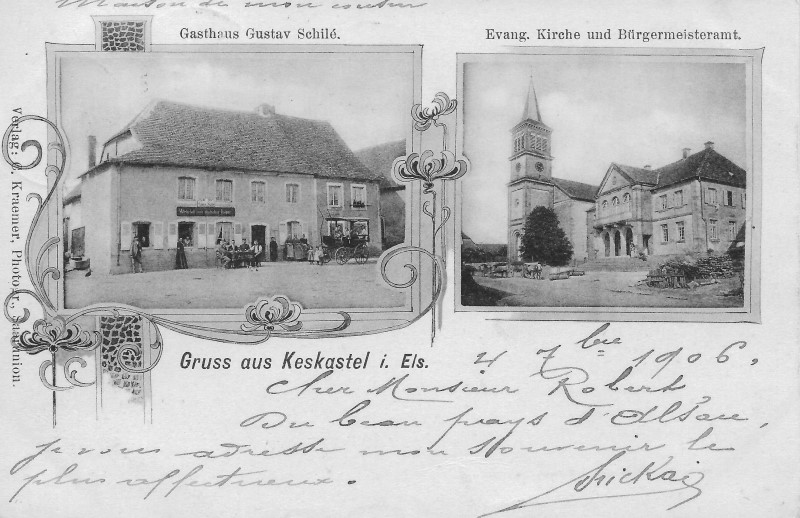 Maison de mon cousin
Gasthaus Gustav Schilé.
Evang. Kirche und Bürgermeisteramt.
Verlag: C. Kraemer, Photogr., Saarunion.
Gruss aus Keskastel i. Els.
4 7bre 1906.
Cher Monsieur Robert,
Du beau pays d'Alsace,
je vous adresse mon souvenir le
plus affectueux.